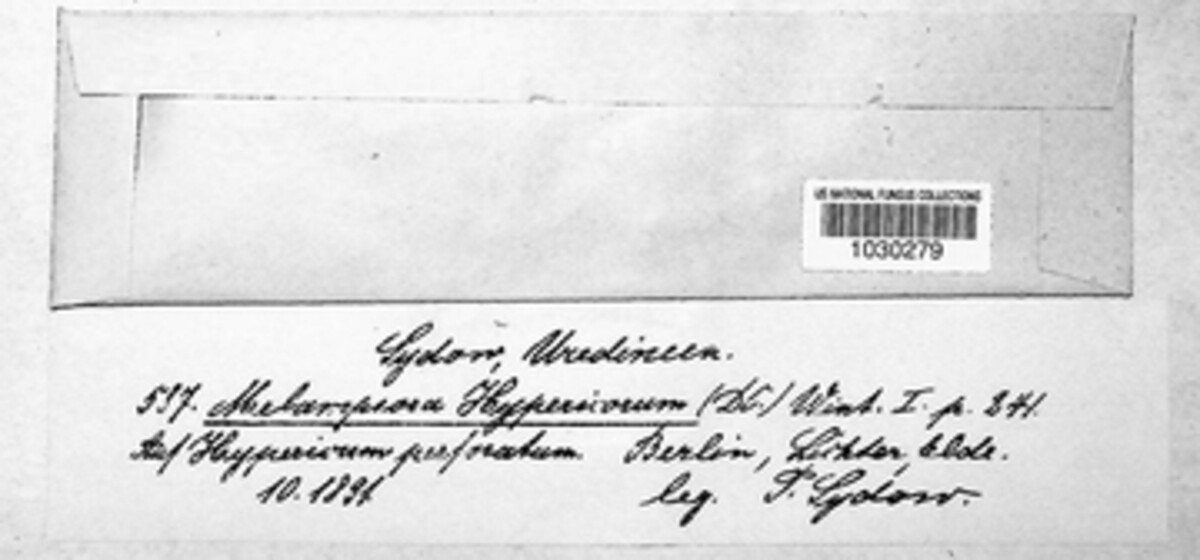 US NATIONAL FUNGUS COLLECTIONS
1030279
Sydow, Uredineen.
537. Melampsora Hypericorum (DC.) Wint. I. p. 241.
Auf Hypericum perforatum. Berlin,
10. 1891 leg. P. Sydow.